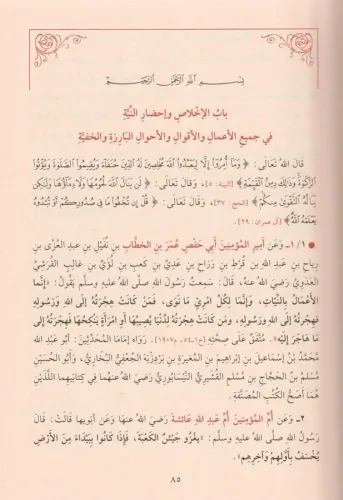 بسم الله الرحمن الرحيم
بَابُ الإِخْلاصِ وإحضارِ النيَّةِ
في جميعِ الأعمالِ والأقوالِ والأحوالِ البارزةِ والخفيَّةِ
قَالَ اللهُ تَعَالَى: ﴿وَمَا أُمِرُوا إِلَّا لِيَعْبُدُوا اللَّهَ مُخْلِصِينَ لَهُ الدِّينَ حُنَفَاءَ وَيُقِيمُوا الصَّلَوةَ وَيُؤْتُوا
الزَّكَوةَ وَذَلِكَ دِينُ الْقَيِّمَةِ﴾ [البينة: ٥]، وقَالَ تَعَالَى: ﴿لَن يَنَالَ اللَّهَ لُحُومُهَا وَلَا دِمَاؤُهَا وَلَكِن
يَنَالُهُ التَّقْوَى مِنكُمْ﴾ [الحج: ٣٧]، وقَالَ تَعَالَى: ﴿قُلْ إِن تُخْفُوا مَا فِي صُدُورِكُمْ أَوْ تُبْدُوهُ
يَعْلَمْهُ اللَّهُ﴾ [آل عمران: ٢٩].
● ١/١ـ وَعَن أميرِ المُؤْمِنينَ أَبي حَفْصٍ عُمَرَ بنِ الخَطَّابِ بْنِ نُفَيْلِ بْنِ عَبدِ العُزَّى بن
رياحِ بن عبدِ اللهِ بن قُرْطِ بن رَزاحِ بن عَدِيِّ بن كَعبِ بن لُؤَيِّ بن غالِبٍ القُرَشِيِّ
العَدَويِّ رضيَ اللهُ عنهُ، قال: سَمِعتُ رسولَ اللهِ صلى الله عليه وسلَّم يقولُ: «إنَّما
الأَعْمَالُ بالنِّيَّاتِ، وإنَّمَا لِكُلِّ امْرِئٍ مَا نَوَى، فَمَنْ كَانَتْ هِجْرَتُهُ إلَى اللهِ وَرَسُولِهِ
فهِجْرتُهُ إلَى اللهِ ورسولِهِ، ومَن كَانَتْ هِجْرَتُهُ لدُنْيَا يُصيبُهَا أَوِ امْرَأَةٍ يَنْكِحُهَا فَهِجْرَتُهُ إلى
مَا هَاجَرَ إليْهِ». مُتَّفَقٌ عَلَى صِحَّتِهِ [خ١ـ٥٤، م١٩٠٧]. رَوَاهُ إمَامَا المُحَدِّثينَ: أبو عبدِ الله
مُحَمَّدُ بْنُ إسْمَاعِيلَ بن إبراهيمَ بن المُغيرةِ بنِ بَرْدِزْبَهْ الجُعْفيُّ البُخَارِيُّ، وأبو الحُسَيْنِ
مُسْلمُ بْنُ الحَجَّاجِ بن مُسْلمٍ القُشَيْريُّ النَّيْسَابُورِيُّ رَضِيَ اللهُ عنهُما في كتابَيهِما اللَّذَيْنِ
هُما أصَحُّ الكُتُبِ المُصَنَّفَةِ.
٢ـ وَعَن أُمِّ المُؤْمِنينَ أُمِّ عَبدِ اللهِ عائشةَ رَضِيَ اللهُ عنها وعَن أَبَوَيها قالَتْ: قَالَ
رَسُولُ اللهِ صلَّى اللهُ عليه وسلم: «يغْزُو جَيْشٌ الكَعْبَةَ، فَإذَا كَانُوا بِبَيْدَاءَ مِنَ الأَرْضِ
يُخْسَفُ بِأَوَّلِهِمْ وآخِرِهِمْ».
٨٥